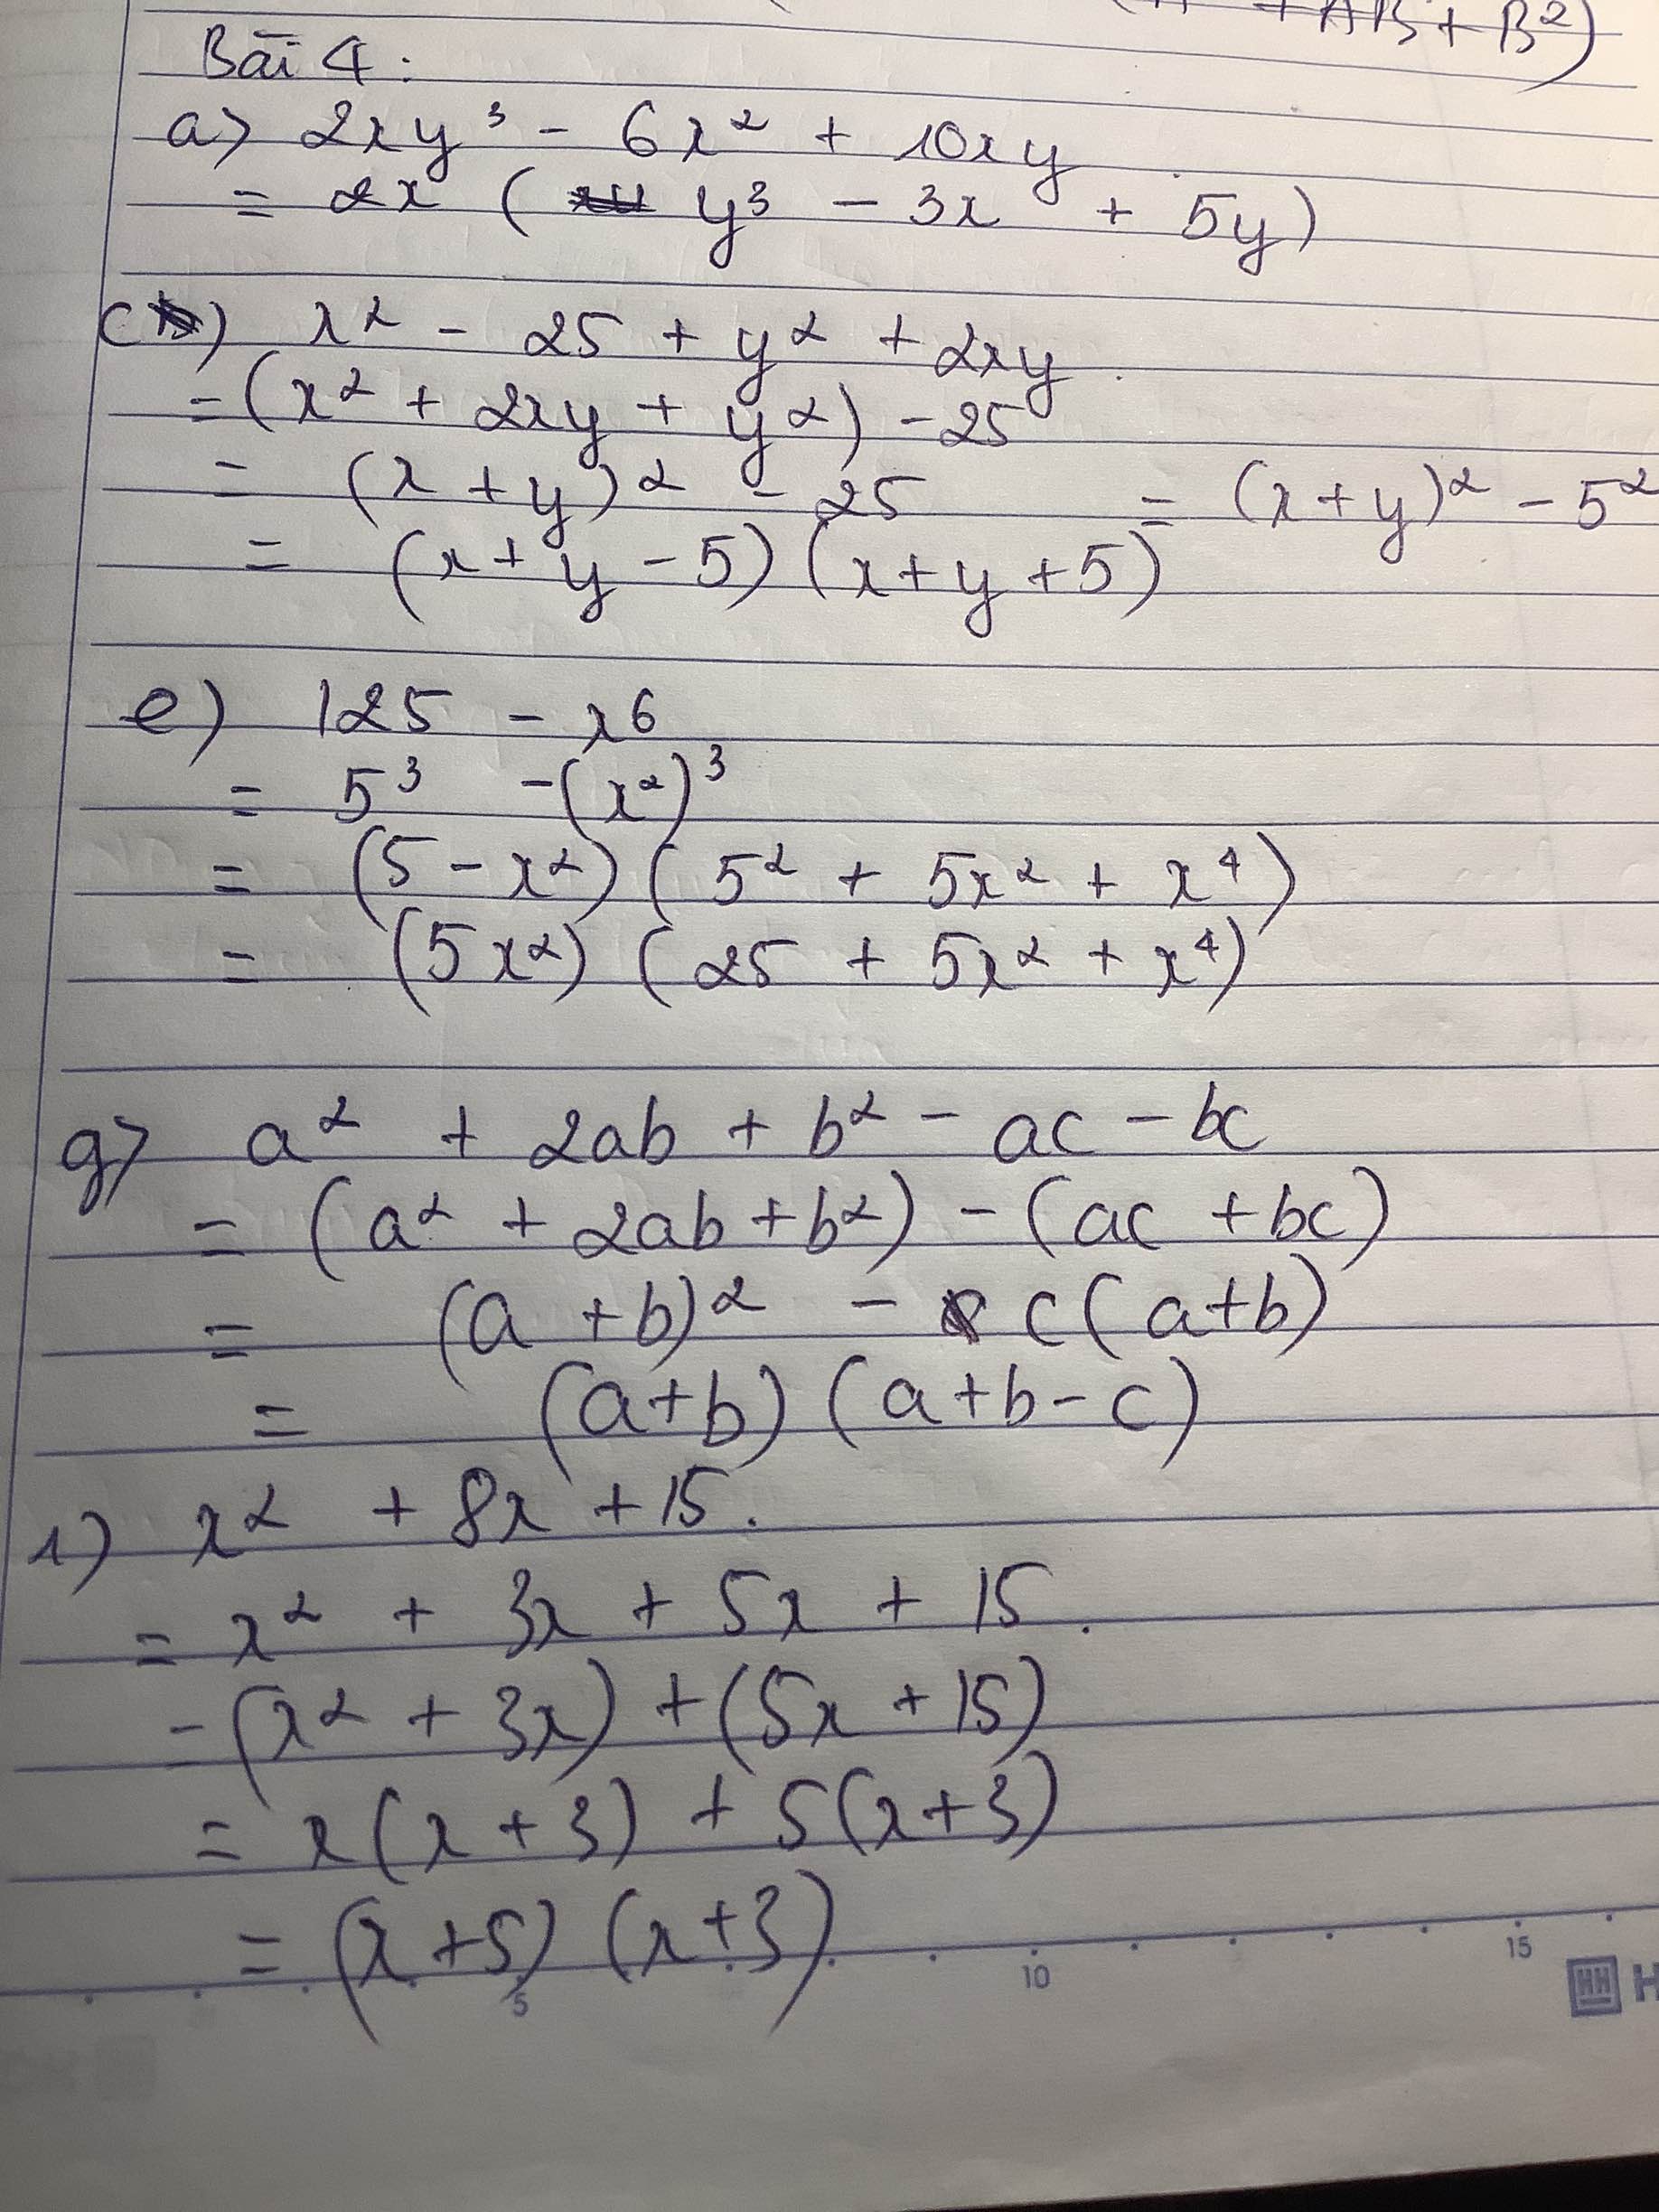 + AB + B²)
Bài 4:
a) 2xy³ - 6x² + 10xy
= 2x ( y³ - 3x + 5y)
c) x² - 25 + y² + 2xy
= (x² + 2xy + y²) - 25
= (x + y)² - 25 = (x + y)² - 5²
= (x + y - 5) (x + y + 5)
e) 125 - x6
= 5³ - (x²)³
= (5 - x²) ( 5² + 5x² + x⁴)
= (5x²) ( 25 + 5x² + x⁴)
g) a² + 2ab + b² - ac - bc
= (a² + 2ab + b²) - (ac + bc)
= (a + b)² - c (a+b)
= (a+b) (a + b - c)
1) x² + 8x + 15.
= x² + 3x + 5x + 15.
- (x² + 3x) + (5x + 15)
= x(x + 3) + 5(x+3)
= (x +5) (x +3)
5 10 15
HH H